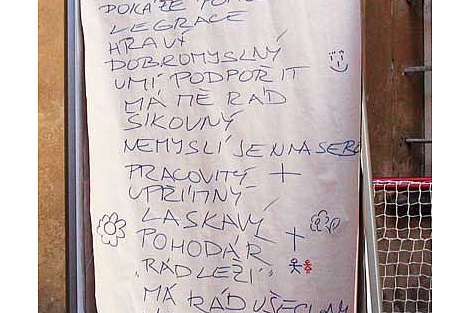 DOKÁŽE
LEGRACE
HRAVÝ
DOBROMYSLNÝ
UMÍ PODPOŘIT
MÁ MĚ RÁD
ŠIKOVNÝ
NEMYSLÍ JEN NA SEBE
PRACOVITÝ +
UPŘÍMNÝ
LASKAVÝ
POHODÁŘ +
"RÁD LEŽÍ"
MÁ RÁD VŠECHNY